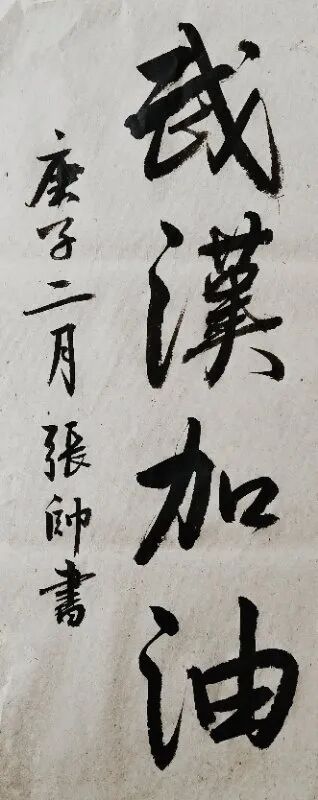 武漢加油
庚子二月張帥書